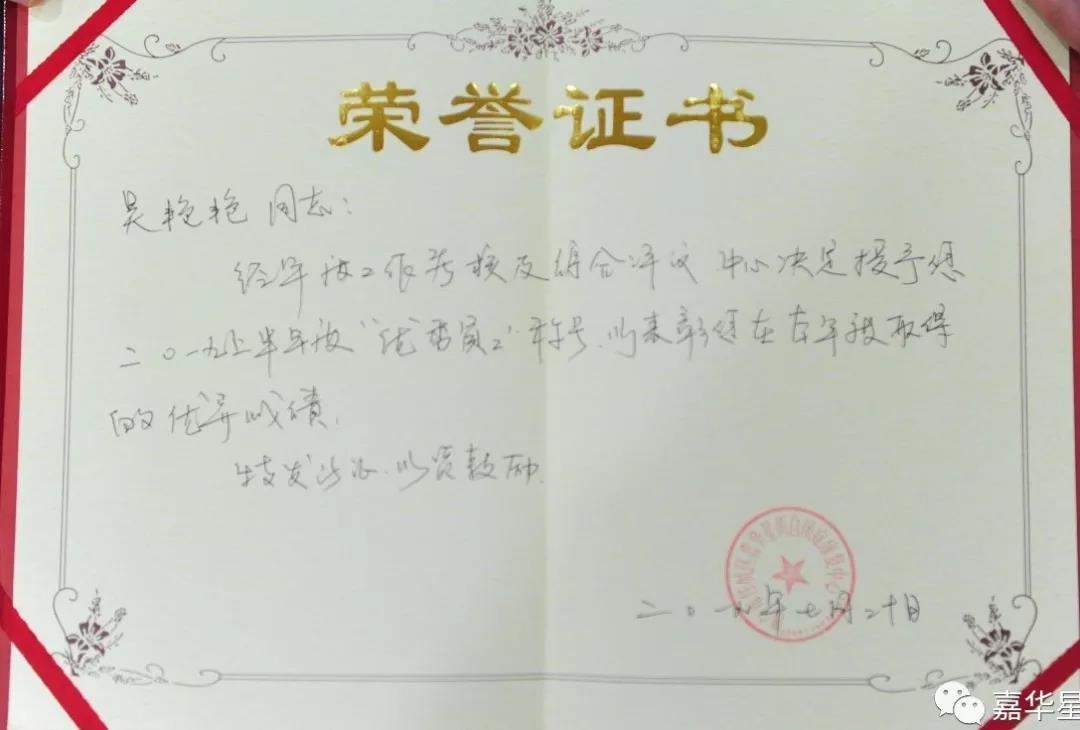 荣誉证书
吴艳艳 同志:
经年被工作考核及综合评议 中心决定授予您
二〇一九上半年度“优秀员工”称号、以表彰您在本年度取得
的优异成绩.
特发此证.以资鼓励.
二〇一九年七月二十日
嘉华星